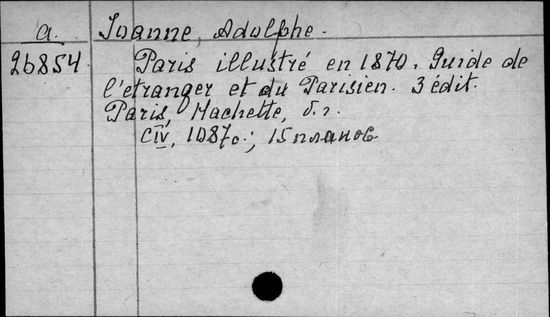 a. Joanne, Adolphe.
26854. Paris illustré en 1870. Guide de
l'etranger et du Parisien. 3 édit.
Paris, Hachette, б.г.
CIV, 1087c.; 15 планов